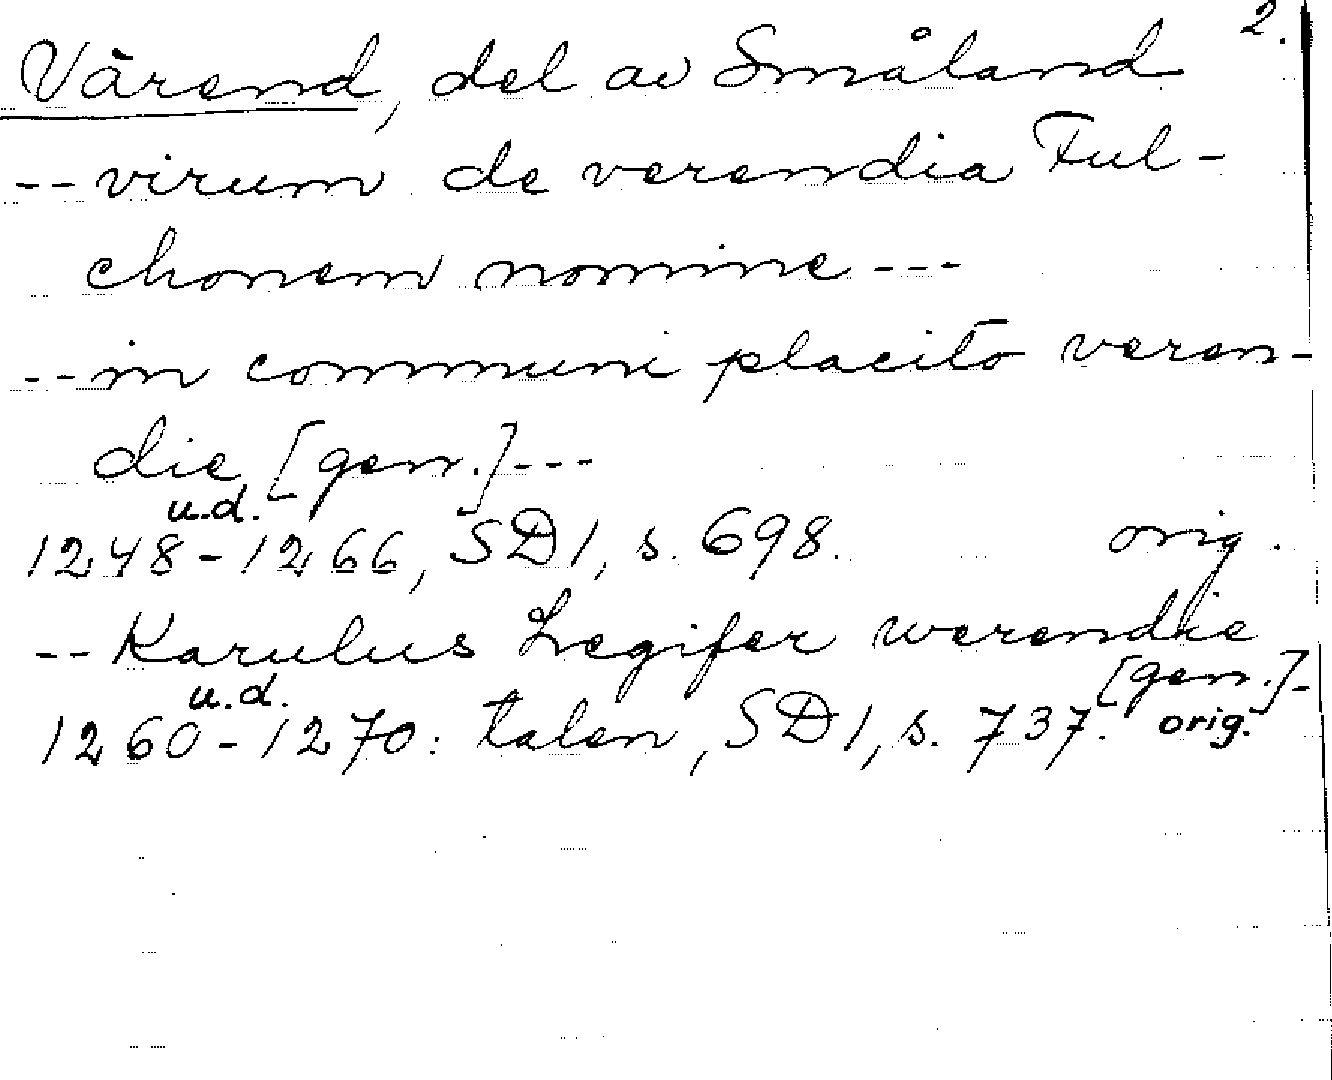 2.
Värend, del av Småland
-- virum de verendia Ful-
chonem nomine ---
-- in communi placito veren-
die [gen.] ---
u.d.
1248-1266, SD 1, s. 698. orig.
-- Karulus Legifer werendie
[gen.]-
u.d.
1260-1270: talen, SD 1, s. 737. orig.